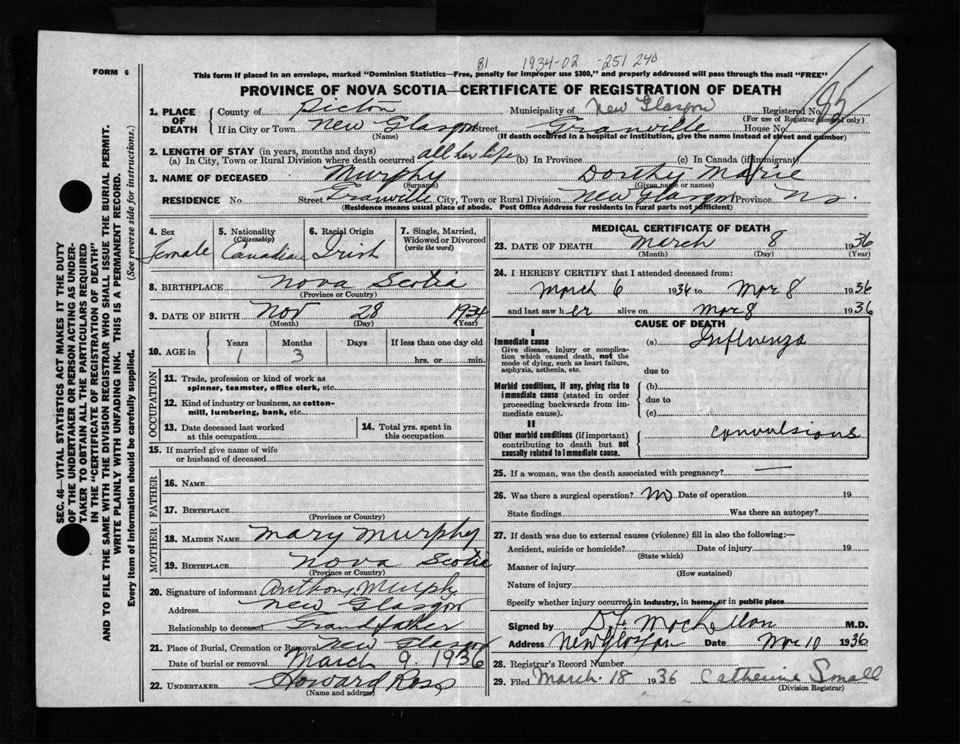 B1 1934-02 -251240
FORM 6
This form if placed in an envelope, marked "Dominion Statistics—Free, penalty for improper use $300," and properly addressed will pass through the mail "FREE"
PROVINCE OF NOVA SCOTIA—CERTIFICATE OF REGISTRATION OF DEATH
1. PLACE OF DEATH County of Pictou Municipality of New Glasgow Registered No.
(For use of Registrar General only)
If in City or Town New Glasgow Street Granville House No.
(Name) (If death occurred in a hospital or institution, give the name instead of street and number)
2. LENGTH OF STAY (in years, months and days)
(a) In City, Town or Rural Division where death occurred all her life (b) In Province (c) In Canada (if immigrant)
3. NAME OF DECEASED Murphy Dorthy Marie
(Surname) (Given name or names)
RESIDENCE No. Street Granville City, Town or Rural Division New Glasgow Province N.S.
(Residence means usual place of abode. Post Office Address for residents in rural parts not sufficient)
4. Sex 5. Nationality (Citizenship) 6. Racial Origin 7. Single, Married, Widowed or Divorced (write the word)
Female Canadian Irish
8. BIRTHPLACE Nova Scotia
(Province or Country)
9. DATE OF BIRTH Nov 28 1934
(Month) (Day) (Year)
10. AGE in Years Months Days If less than one day old
1 3 hrs. or min.
OCCUPATION
11. Trade, profession or kind of work as spinner, teamster, office clerk, etc.
12. Kind of industry or business, as cotton-mill, lumbering, bank, etc.
13. Date deceased last worked at this occupation 14. Total yrs. spent in this occupation
15. If married give name of wife or husband of deceased
FATHER
16. NAME
17. BIRTHPLACE
(Province or Country)
MOTHER
18. MAIDEN NAME Mary Murphy
19. BIRTHPLACE Nova Scotia
(Province or Country)
20. Signature of informant Anthony Murphy
Address New Glasgow
Relationship to deceased Grandfather
21. Place of Burial, Cremation or Removal New Glasgow
Date of burial or removal March 9 1936
22. UNDERTAKER Howard Ross
(Name and address)
MEDICAL CERTIFICATE OF DEATH
23. DATE OF DEATH March 8 1936
(Month) (Day) (Year)
24. I HEREBY CERTIFY that I attended deceased from:
March 6 1936 to Mar 8 1936
and last saw her alive on Mar 8 1936
CAUSE OF DEATH
I
Immediate cause (a) Influenza
Give disease, injury or complication which caused death, not the mode of dying, such as heart failure, asphyxia, asthenia, etc.
due to
Morbid conditions, if any, giving rise to immediate cause (stated in order proceeding backwards from immediate cause).
(b)
due to
(c)
II
Other morbid conditions (if important) contributing to death but not causally related to immediate cause.
convulsions
25. If a woman, was the death associated with pregnancy? —
26. Was there a surgical operation? No Date of operation 19
State findings Was there an autopsy?
27. If death was due to external causes (violence) fill in also the following:—
Accident, suicide or homicide? Date of injury 19
(State which)
Manner of injury
(How sustained)
Nature of injury
Specify whether injury occurred in industry, in home, or in public place
Signed by M.D.
Address New Glasgow Date Mar 10 1936
28. Registrar's Record Number
29. Filed March 18 1936 Catherine Small
(Division Registrar)
SEC. 46—VITAL STATISTICS ACT MAKES IT THE DUTY
OF THE UNDERTAKER OR PERSON ACTING AS UNDER-
TAKER TO OBTAIN ALL THE PARTICULARS REQUIRED
IN THE "CERTIFICATE OF REGISTRATION OF DEATH"
AND TO FILE THE SAME WITH THE DIVISION REGISTRAR WHO SHALL ISSUE THE BURIAL PERMIT.
WRITE PLAINLY WITH UNFADING INK. THIS IS A PERMANENT RECORD.
Every item of information should be carefully supplied. (See reverse side for instructions.)